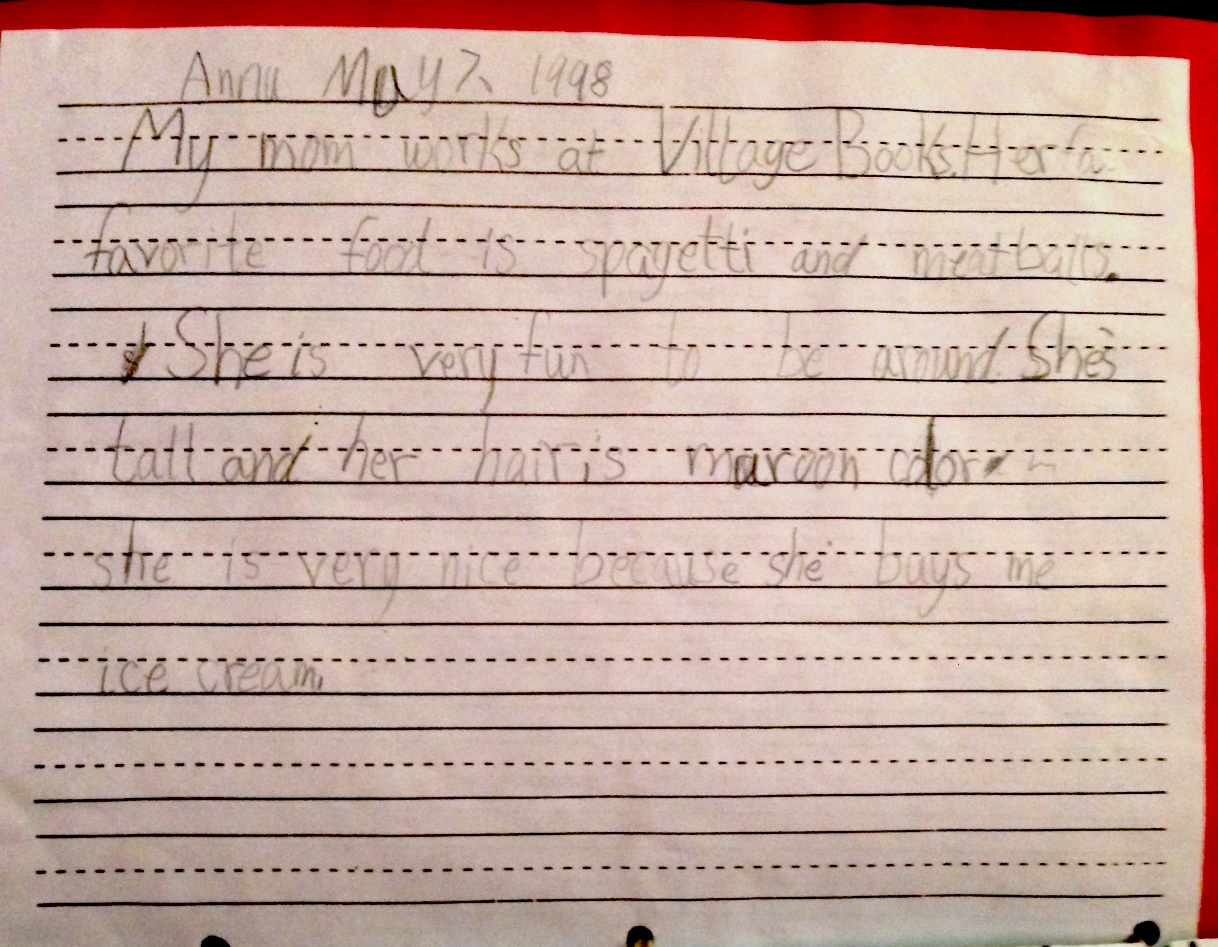 Anna May 7, 1998
My mom works at Village Books. Her fa
favorite food is spagetti and meatballs.
She is very fun to be around. She's
tall and her hair is maroon color
she is very nice because she buys me
ice cream.